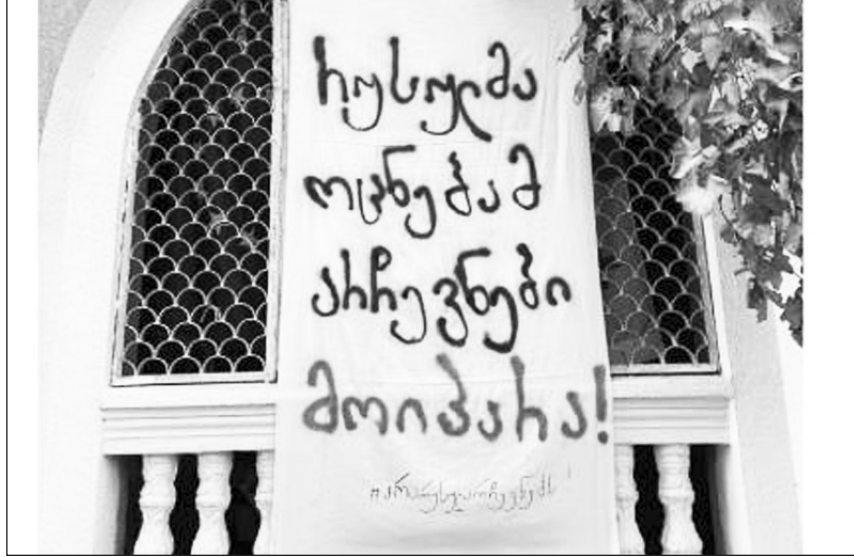 რუსულმა
ოცნებამ
არჩევნები
მოიპარა!
#არარუსულარჩევნებს